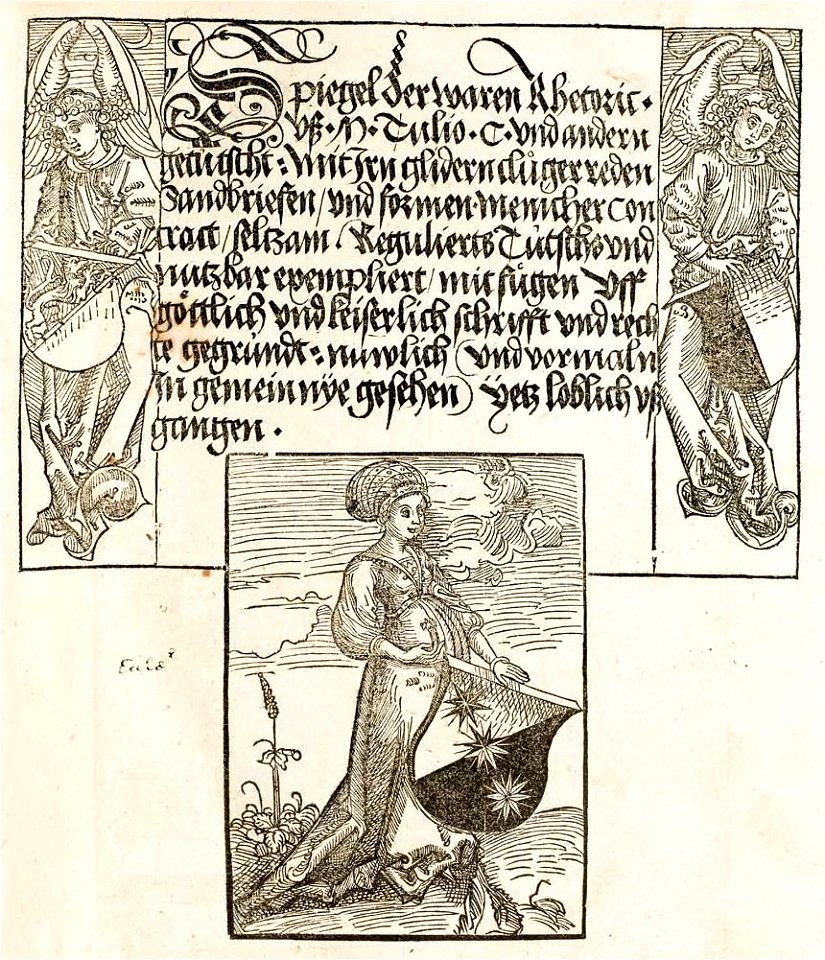 Spiegel der waren Rhetoric.
vß. M. Tulio. C. vnd andern
getütscht: Mit Irn glidern clůger reden
Sandbriefen / vnd formen. menicher con
tract / seltzam. Regulierts Tütschs vnd
nutzbar exempliert / mit fůgen vff
göttlich vnd keiserlich schrifft vnd rech
te gegründt: nuwlich (vnd vormaln
In gemein nÿe gesehen) ÿetz loblich vß
gangen.